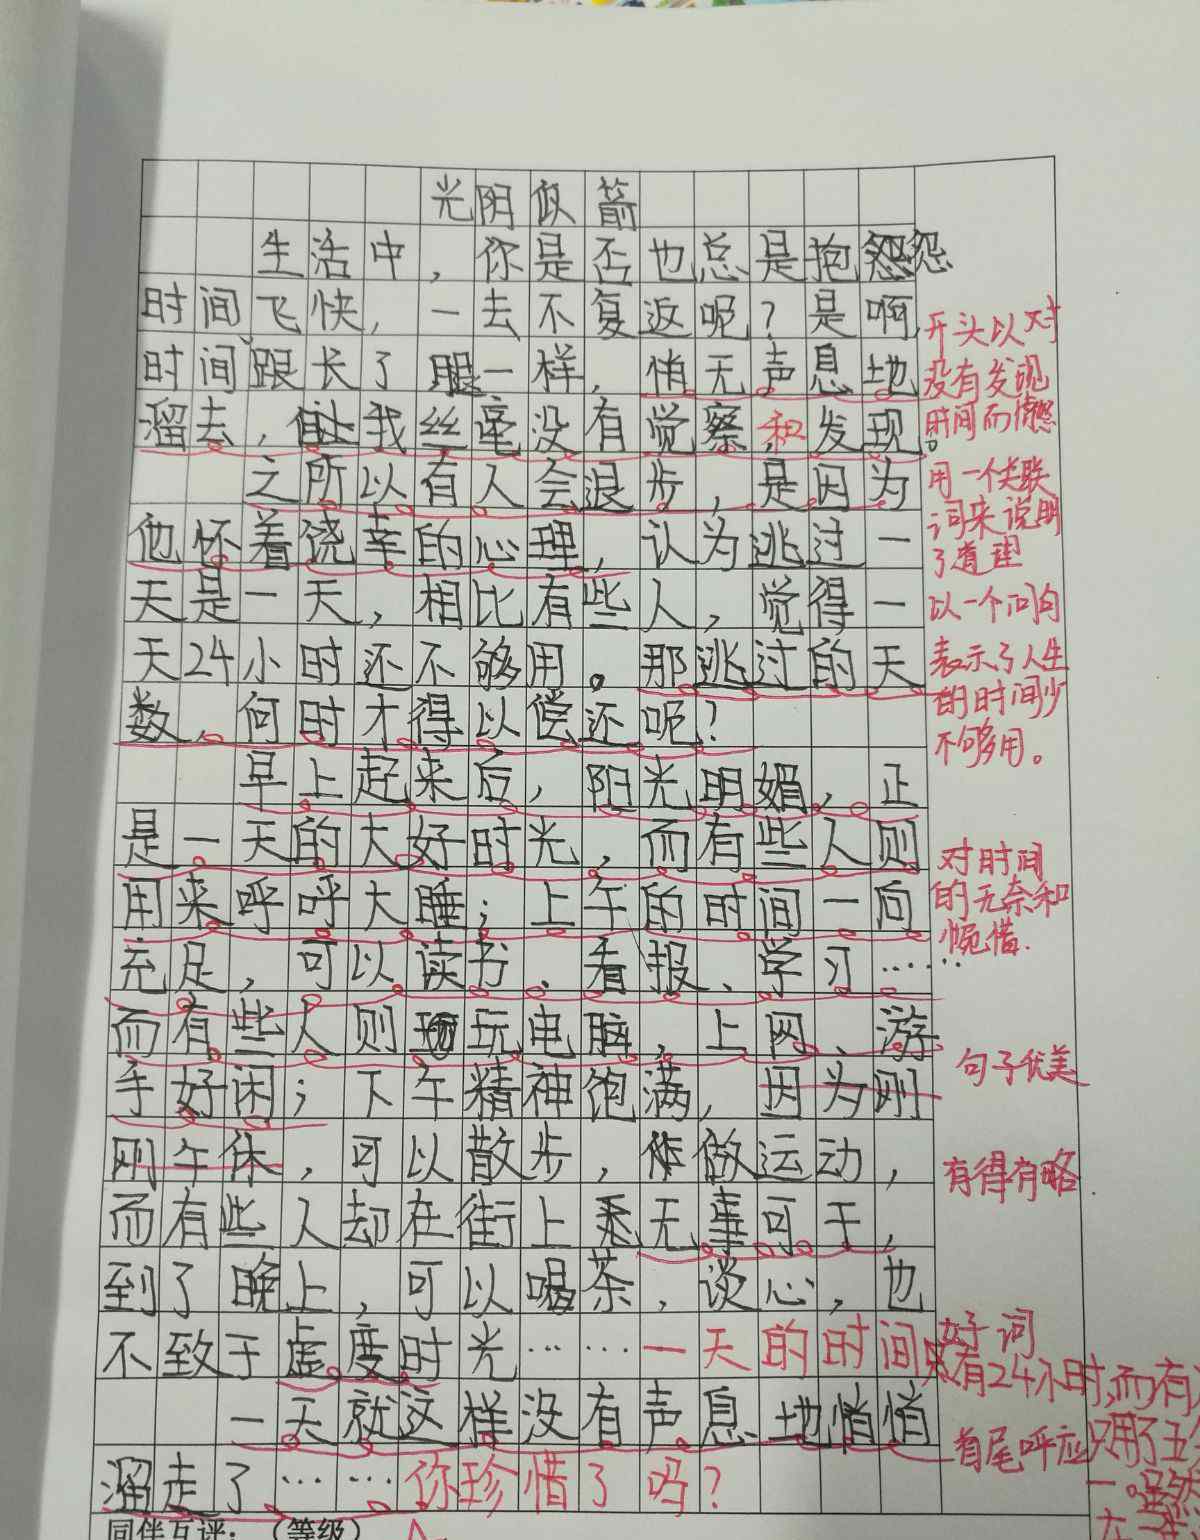 光阴似箭
生活中，你是否也总是抱怨怨
时间飞快，一去不复返呢？是啊，
时间跟长了腿一样，悄无声息地
溜去，让我丝毫没有觉察和发现。
之所以有人会退步，是因为
他怀着侥幸的心理，认为逃过一
天是一天，相比有些人，觉得一
天24小时还不够用。那逃过的天
数，何时才得以偿还呢？
早上起来后，阳光明媚，正
是一天的大好时光，而有些人则
用来呼呼大睡；上午的时间一向
充足，可以读书、看报、学习……
而有些人则玩电脑，上网、游
手好闲；下午精神饱满，因为刚
刚午休，可以散步，做运动，
而有些人却在街上无事可干，
到了晚上，可以喝茶，谈心，也
不致于虚度时光……一天的时间只
有24小时，而有
只用了五
一天就这样没有声息地悄悄
溜走了……你珍惜了吗？
开头以对
没有发现
时间而
用一个关联
词来说明
了道理
以一个问句
表示了人生
的时间少
不够用。
对时间
的无奈和
惋惜.
句子优美
有得有略
好词
首尾呼应
同伴互评：（等级）